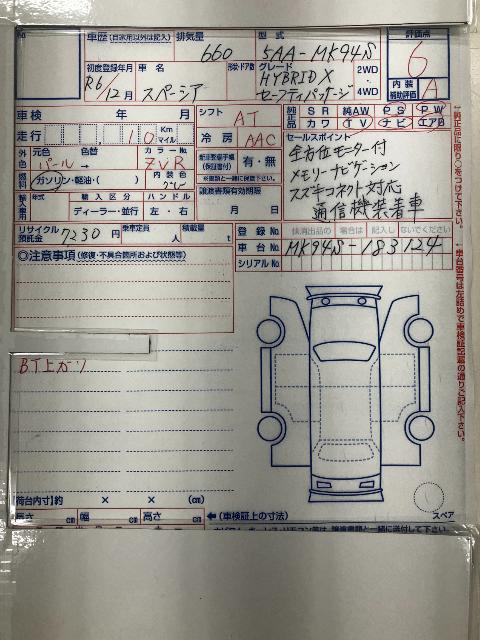 車歴 (自家用以外は記入) 排気量 660 型式 5AA-MK94S 評価点 6
初度登録年月 R6/12月 車名 スペーシア 形状・ドア数 グレード HYBRID X セーフティパッケージ 2WD 4WD 内装補助評価 A
車検 年 月 シフト AT 純正品 SR 純AW PS PW
カワ TV ナビ エアB
走行 10 Km マイル 冷房 AAC セールスポイント
外色 元色 パール→ 色替 カラーNo ZVR 有・無 全方位モニター付
燃料 ガソリン・軽油・( ) 内装色 グレー メモリーナビゲーション
輸入車 年式 輸入区分 ハンドル 譲渡書類有効期限 スズキコネクト対応
ディーラー・並行 左・右 月 日 通信機装着車
リサイクル預託金 7230円 乗車定員 人 積載量 t 登録No
車台No MK94S-183124
シリアルNo
◎注意事項 (修復・不具合箇所および状態等)
BT上がり
荷台内寸)約 × × (cm)
長さ cm 幅 cm 高さ cm ←(車検証上の寸法)
スペア
↑純正品に限り○をつけて下さい。
↑車台番号は左詰めで車検証記載の通りご記入下さい。